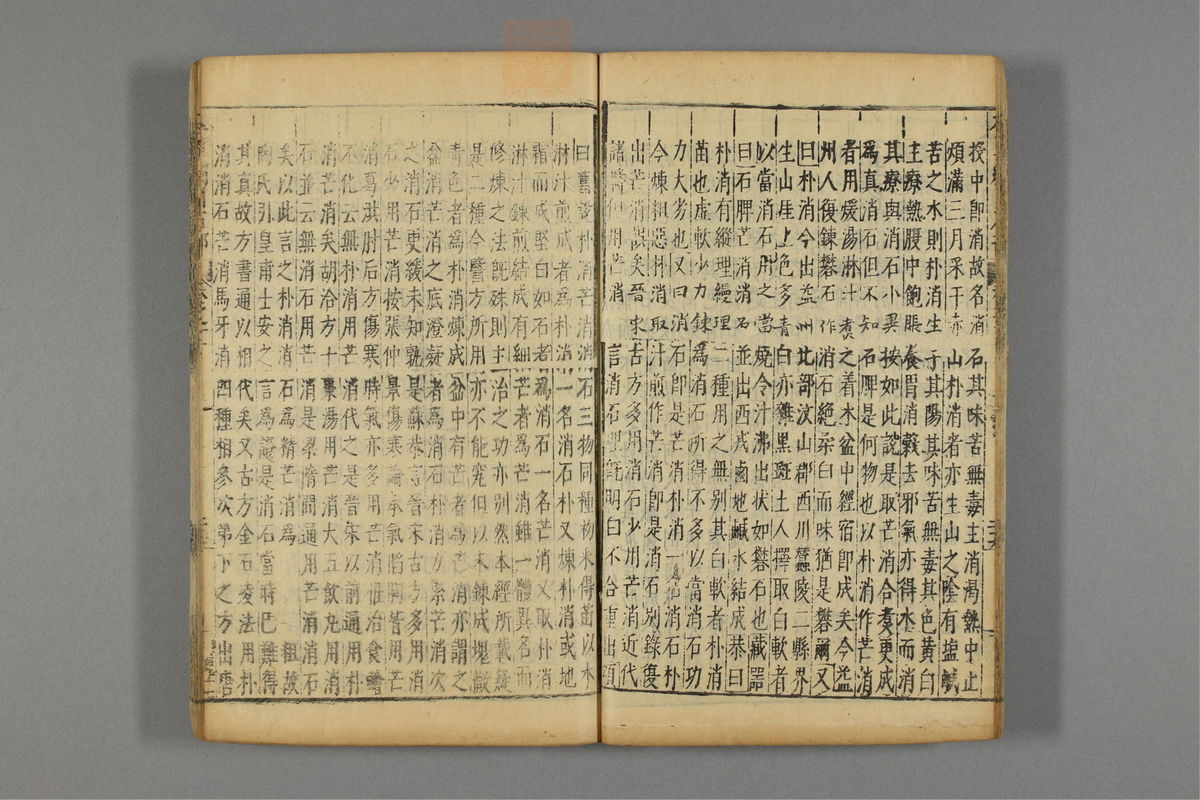 投中即消故名消石其味苦無毒主消渴熱中止
煩滿三月采于赤山朴消者亦生山之陰有塩鹹
苦之水則朴消生于其陽其味苦無毒其色黃白
主療熱腹中飽脹養胃消穀去邪氣亦得水而消
其療與消石小異按如此說是取芒消合煑更成
爲真消石但不知石脾是何物也以朴消作芒消
者用煖湯淋汁煑之着木盆中經宿即成矣今益
州人復鍊礬石作消石絶柔白而味猶是礬爾又
曰朴消今出益州北部汶山郡西川蠶陵二縣界
生山崖上色多青白亦雜黒斑土人擇取白軟者
以當消石用之當燒令汁沸出状如礬石也藏器
曰石脾芒消消石並出西戎鹵地鹹水結成恭曰
朴消有縱理縵理二種用之無别其白軟者朴消
苗也虛軟少力鍊爲消石所得不多以當消石功
力大劣也又曰消石即是芒消朴消一名消石朴
今煉粗惡朴消取汁煎作芒消即是消石别錄復
出芒消誤矣晉宋古方多用消石少用芒消近代
諸醫但用芒消言消石理既明白不合重出頌
曰舊說朴消芒消消石三物同種初采得苗以水
淋汁煎成者爲朴消一名消石朴又煉朴消或地
霜而成堅白如石者爲消石一名芒消又取朴消
淋汁鍊煎結成有細芒者爲芒消雖一體異名而
修煉之法既殊則主治之功亦别然本經所載疑
是二種今醫方所用亦不能究但以未鍊成塊微
青色者爲朴消煉成盆中有芒者爲芒消亦謂之
盆消芒消之底澄凝者爲消石朴消力緊芒消次
之消石更緩未知孰是蘇恭言晉宋古方多用消
石少用芒消按張仲景傷寒論承氣陷胸皆用芒
消葛洪肘后方傷寒時氣亦多用芒消惟治食鱠
不化云無朴消用芒消代之是晉宋以前通用朴
消芒消矣胡洽方十棗湯用芒消大五飲丸用消
石並云無消石用芒消是梁隋間通用芒消消石
矣以此言之朴消消石爲精芒消爲粗故
陶氏引皇甫士安之言爲證是消石當時已難得
其真故方書通以相代矣又古方金石凌法用朴
消消石芒消馬牙消四種相參次第下之方出唐